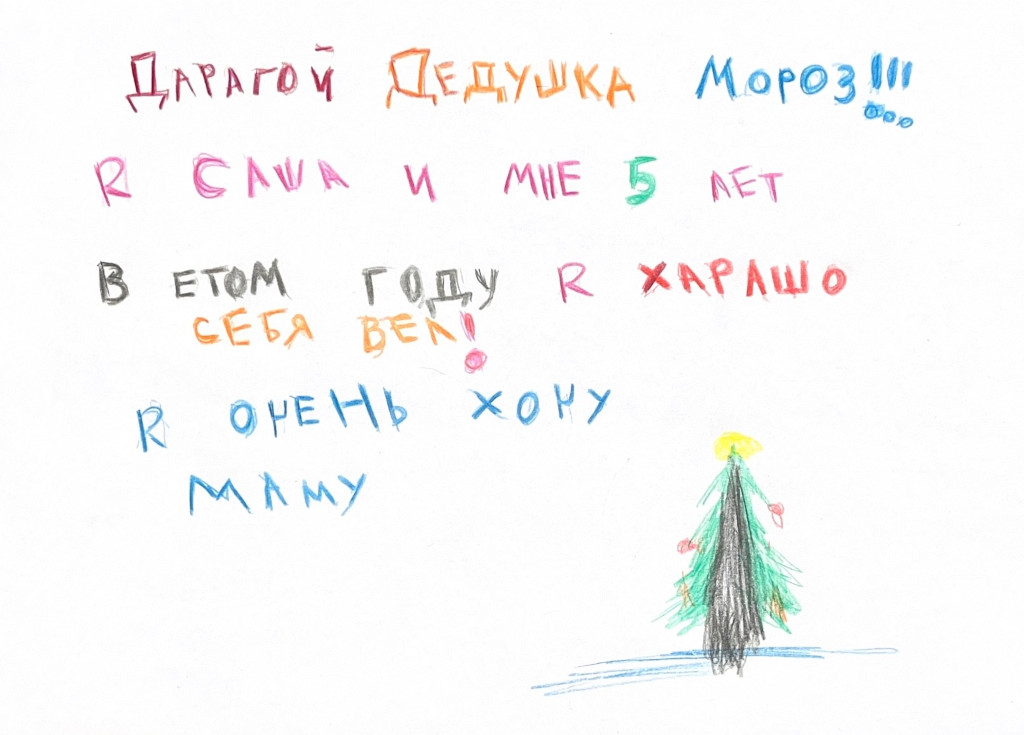 ДАРАГОЙ ДЕДУШКА МОРОЗ!!!
R САША И МНЕ 5 ЛЕТ
В ЕТОМ ГОДУ R ХАРАШО
СЕБЯ ВЕЛ!
R ОЧЕНЬ ХОЧУ
МАМУ